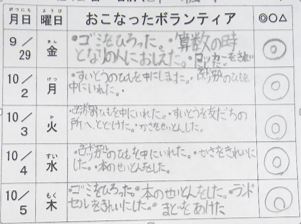 月にち 曜よう日び おこなったボランティア ◎○△
9/29 金きん ・ゴミをひろった。・算数の時
となりの人におしえた。・ロッカーをきれい
10/2 月げつ ・すいとうのひもを中にしまた。・ のひもを中
にいれた。
10/3 火か ひもを中にいれた。・すいとうを友だちの
所へとどけた。・かさをせいとんした。
10/4 水すい ・ のひもを中にいれた。・かさをきれいに
した。・本のせいとんをした。
10/5 木もく ・ゴミをひろった。・本のせいとんをした。・ランド
セルをきれいにした。・ まとをあけた